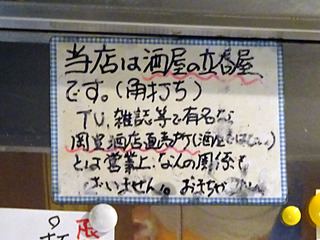 当店は酒屋の立呑屋
です。(角打ち)
TV、雑誌等で有名な
岡室酒店直売所(酒屋ではない)
とは営業上なんの関係も
ございません。おまちがい